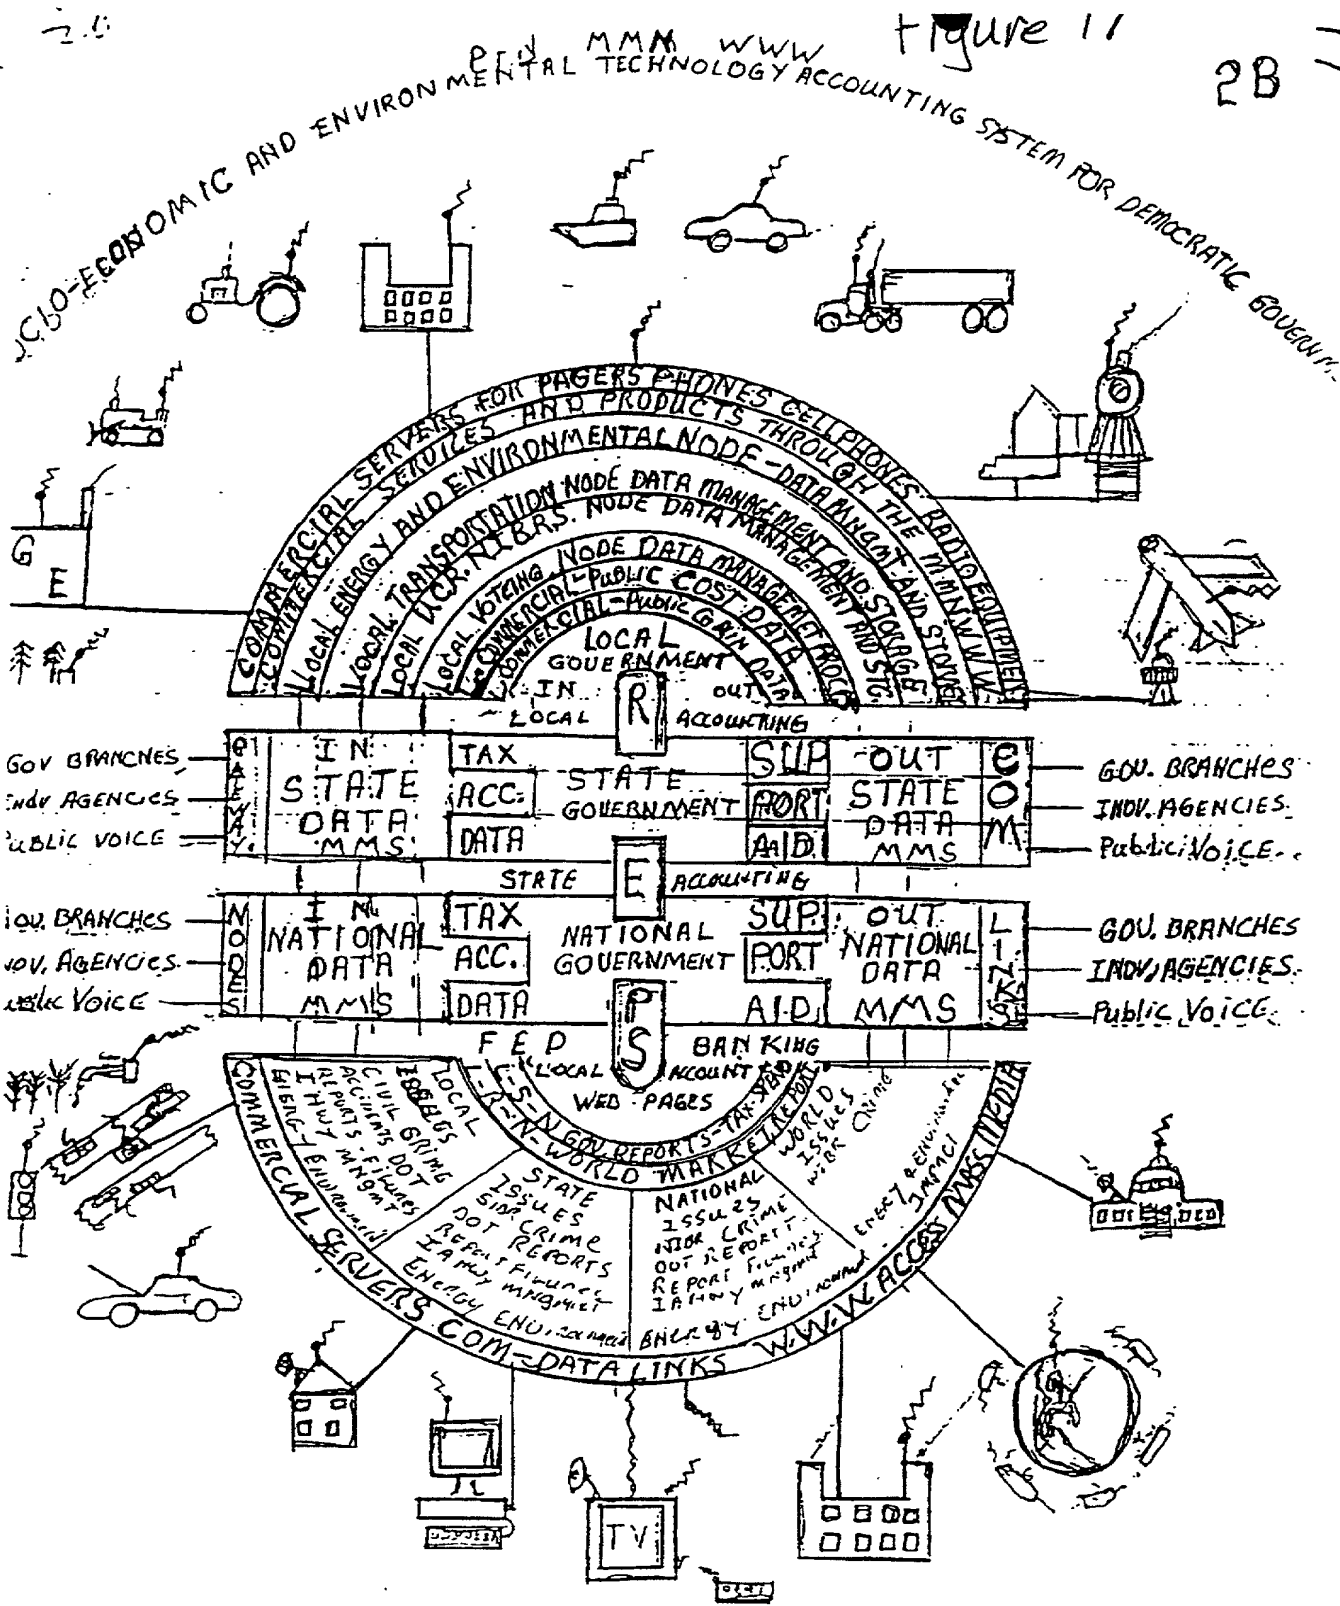 Figure 11
2B
MMM WWW
ECONOMIC AND ENVIRONMENTAL TECHNOLOGY ACCOUNTING SYSTEM FOR DEMOCRATIC GOVERNM
COMMERCIAL SERVERS FOR PAGERS PHONES CELLPHONES RADIO EQUIPMENT
COMMERCIAL SERVICES AND PRODUCTS THROUGH THE MMN WWW
LOCAL ENERGY AND ENVIRONMENTAL NODE-DATA MNGMT AND STORAGE
LOCAL TRANSPORTATION NODE DATA MANAGEMENT AND STORAGE
LOCAL U.C.R. N.I.B.R.S. NODE DATA MANAGEMENT AND STG.
LOCAL VOTEING NODE DATA MANAGEMET
COMMERCIAL-PUBLIC COST DATA
COMMERCIAL-Public GAIN DATA
G
E
LOCAL
GOVERNMENT
IN R OUT
LOCAL ACCOUNTING
GOV BRANCHES
INDV AGENCIES
PUBLIC VOICE
GATEWAY
IN
STATE
DATA
MMS
TAX
ACC.
DATA
STATE
GOVERNMENT
SUP
PORT
AID
OUT
STATE
DATA
MMS
COM
GOV. BRANCHES
INDV. AGENCIES
Public VOICE
STATE E ACCOUNTING
GOV. BRANCHES
GOV. AGENCIES
VOICE
NODES
IN
NATIONAL
DATA
MMS
TAX
ACC.
DATA
NATIONAL
GOVERNMENT
P
SUP
PORT
AID
OUT
NATIONAL
DATA
MMS
LINKS
GOV. BRANCHES
INDV. AGENCIES
Public VOICE
FED S BANKING
LOCAL ACCOUNT
WEB-PAGES
L-S-N GOV. REPORTS-TAX-SPEND
L-R-N-WORLD MARKET REPORT
LOCAL
CIVIL CRIME
ACCIDENTS DOT
REPORTS-FIGURES
I HWY MNGMAT
ENERGY
STATE
ISSUES
CRIME
DOT REPORTS
ENERGY
NATIONAL
ISSUES
CRIME
OUT REPORT
REPORT
ENERGY
WORLD
ISSUES
CRIME
IMPACT
COMMERCIAL SERVERS COM-DATA LINKS W.W.W ACCESS MASS MEDIA
TV